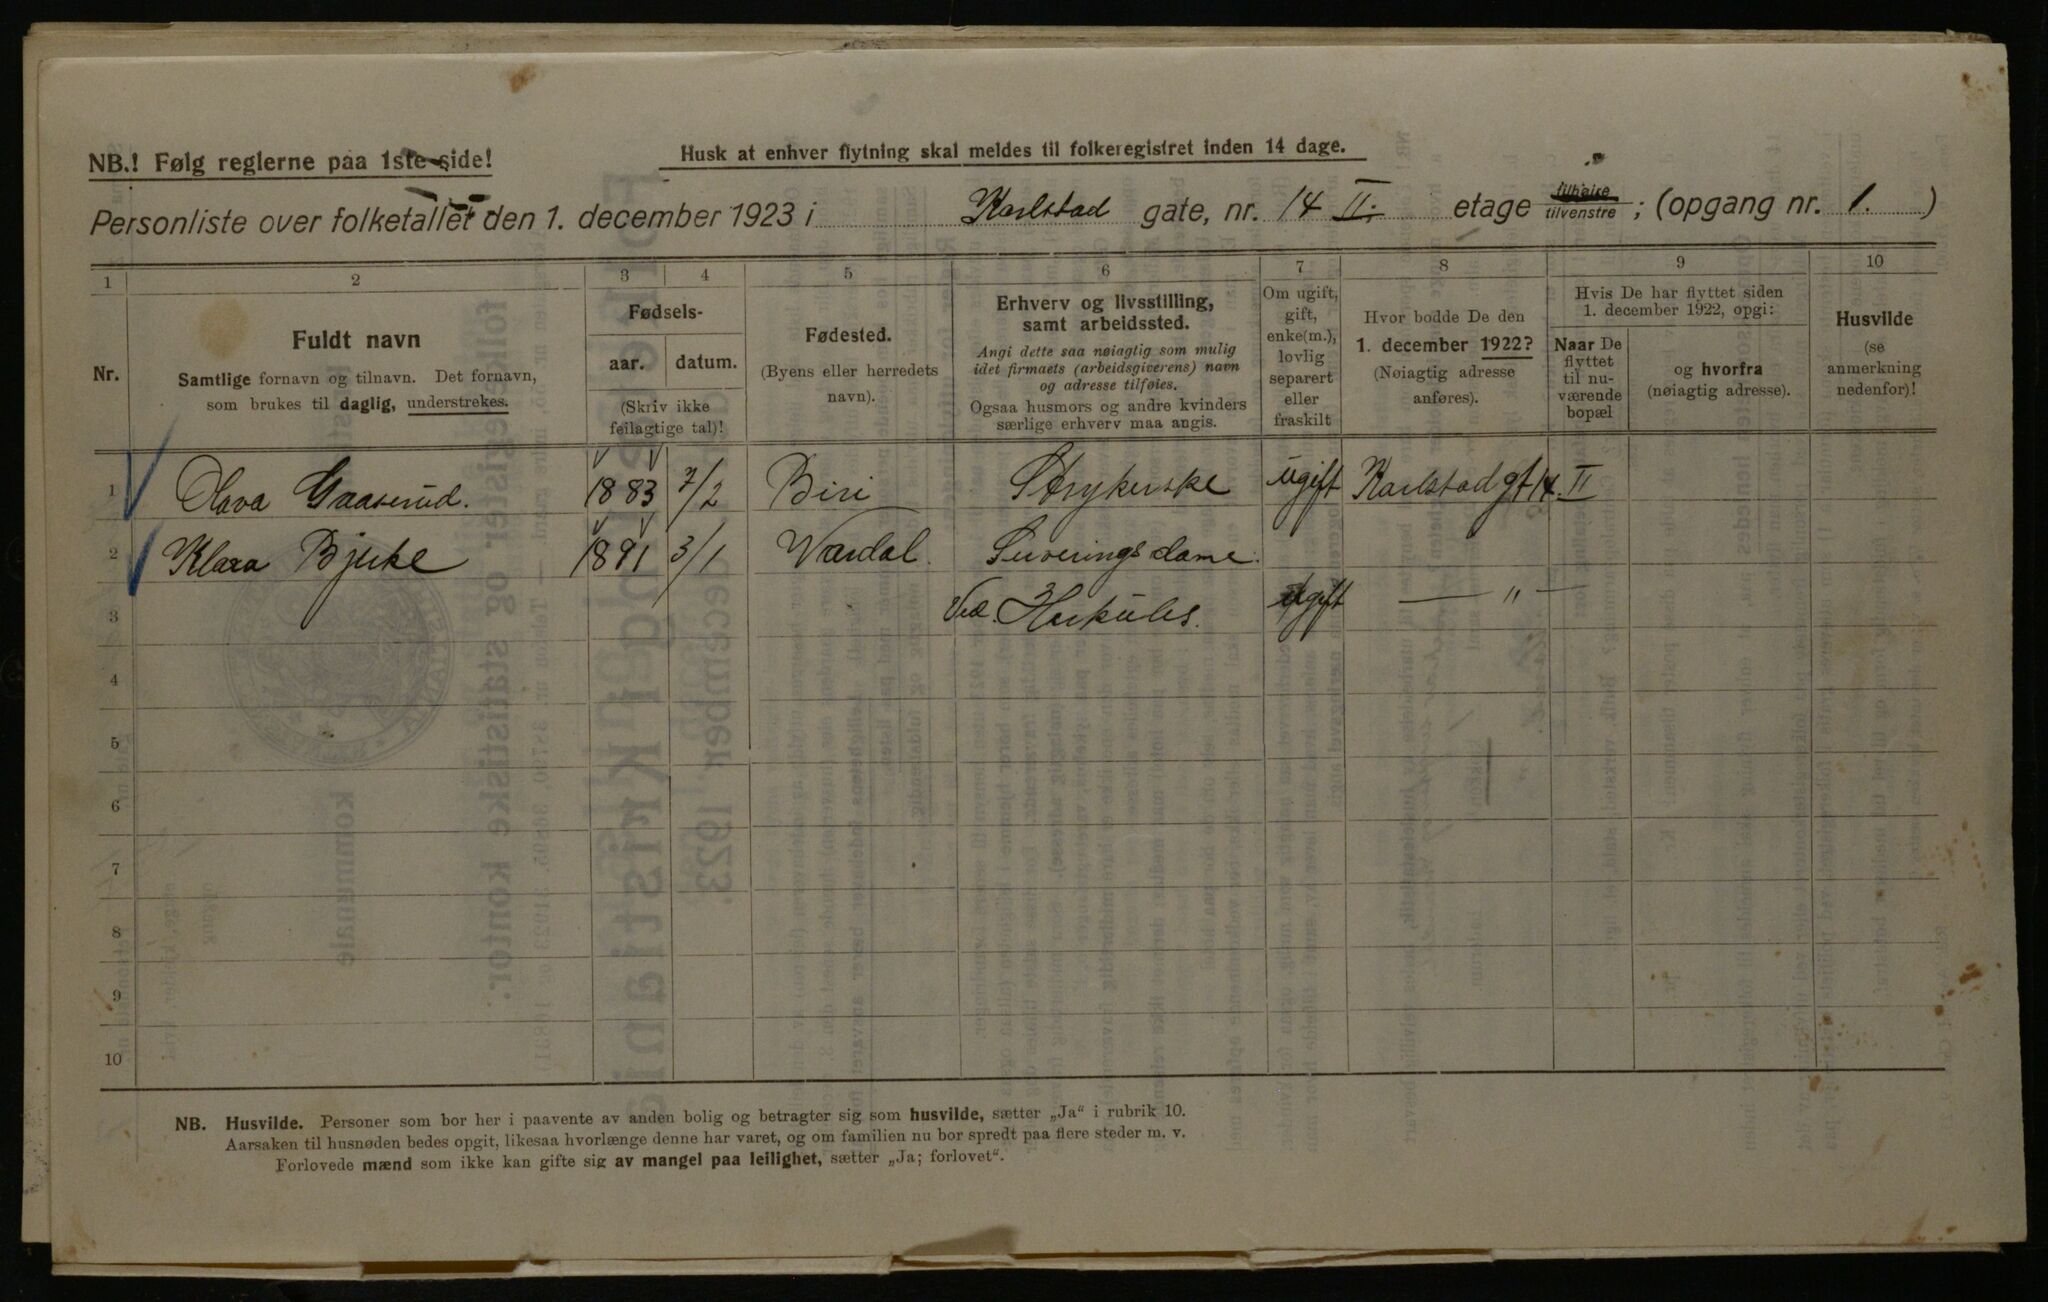 NB.! Følg reglerne paa 1ste side!
Husk at enhver flytning skal meldes til folkeregistret inden 14 dage.
Personliste over folketallet den 1. december 1923 i Karlstad gate, nr. 14 II. etage tilhøire tilvenstre; (opgang nr. 1. )
1 2 3 4 5 6 7 8 9 10
Nr.
Fuldt navn
Samtlige fornavn og tilnavn. Det fornavn,
som brukes til daglig, understrekes.
Fødsels-
aar. datum.
(Skriv ikke
feilagtige tal)!
Fødested.
(Byens eller herredets
navn).
Erhverv og livsstilling,
samt arbeidssted.
Angi dette saa nøiagtig som mulig
idet firmaets (arbeidsgiverens) navn
og adresse tilføies.
Ogsaa husmors og andre kvinders
særlige erhverv maa angis.
Om ugift,
gift,
enke(m.),
lovlig
separert
eller
fraskilt
Hvor bodde De den
1. december 1922?
(Nøiagtig adresse
anføres).
Hvis De har flyttet siden
1. december 1922, opgi:
Naar De
flyttet
til nu-
værende
bopæl
og hvorfra
(nøiagtig adresse).
Husvilde
(se
anmerkning
nedenfor)!
1 Olava Gaaserud. 1883 7/2 Biri Strykerske ugift Karlstadgt 14 II
2 Klara Bjerke 1891 3/1 Vardal. Serveringsdame.
3 Ved. Herkules. ugift — " —
4
5
6
7
8
9
10
NB. Husvilde. Personer som bor her i paavente av anden bolig og betragter sig som husvilde, sætter „Ja“ i rubrik 10.
Aarsaken til husnøden bedes opgit, likesaa hvorlænge denne har varet, og om familien nu bor spredt paa flere steder m. v.
Forlovede mænd som ikke kan gifte sig av mangel paa leilighet, sætter „Ja; forlovet“.